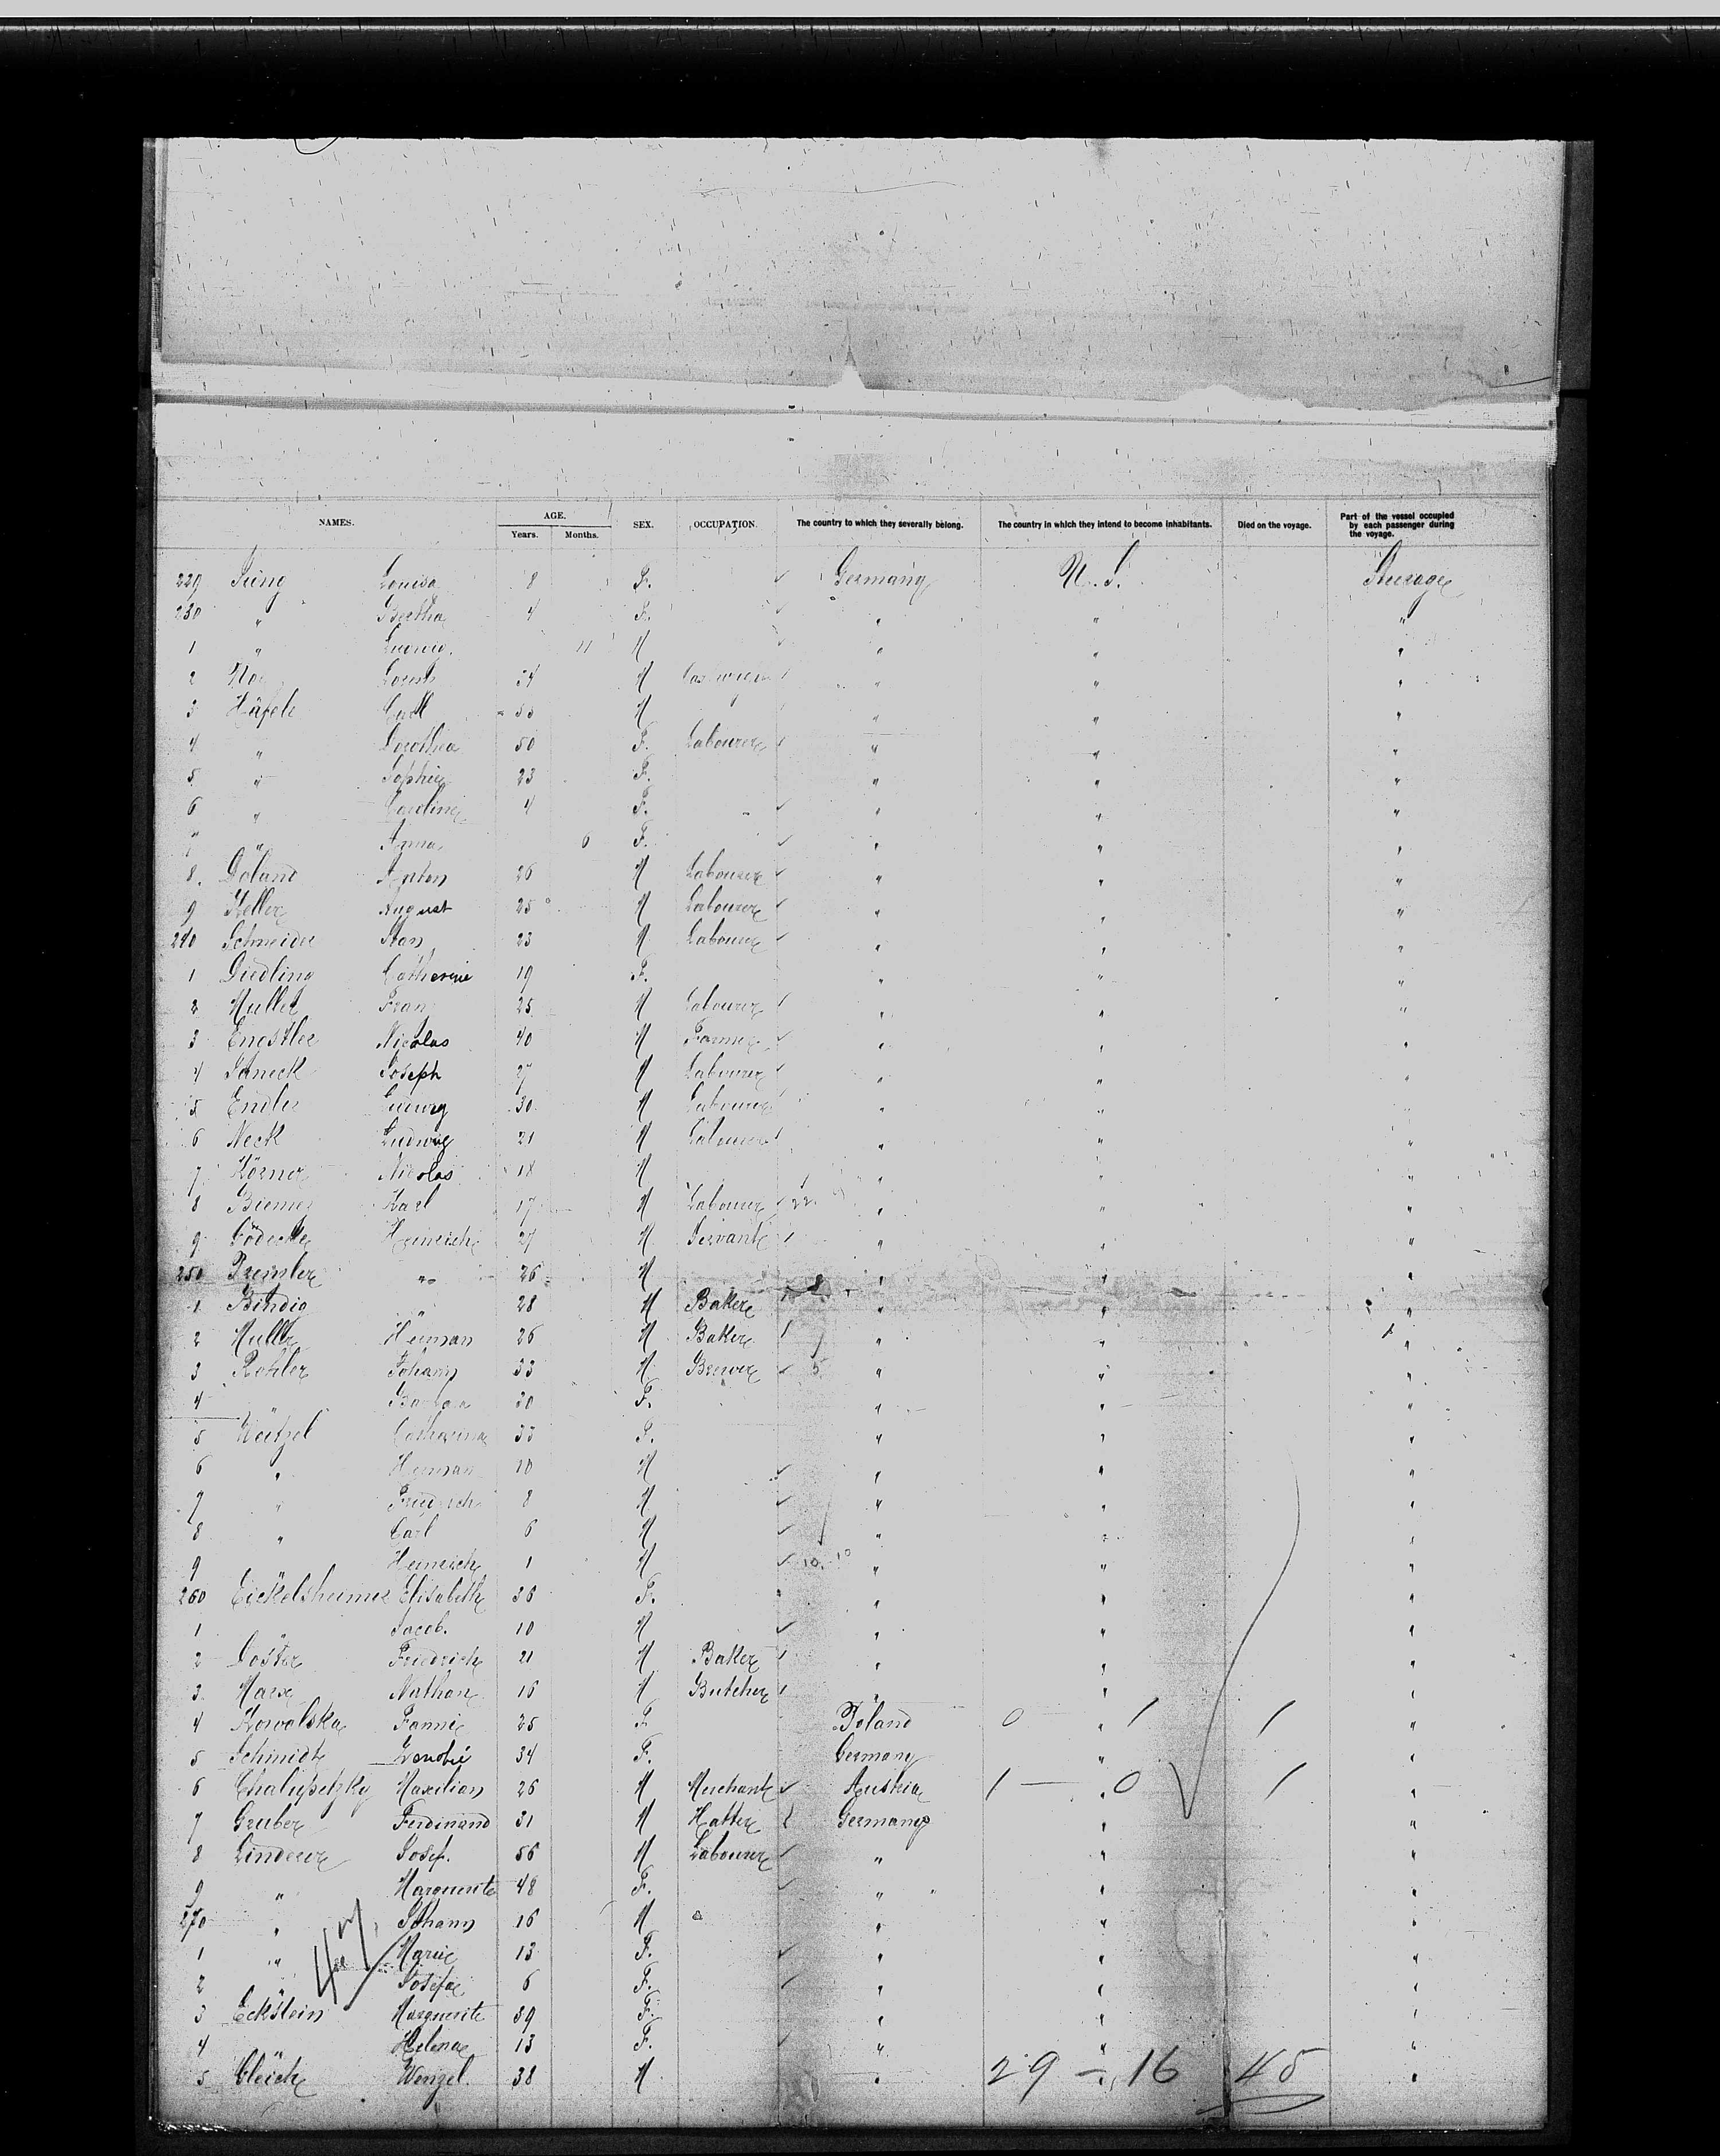 NAMES. AGE. SEX. OCCUPATION. The country to which they severally belong. The country in which they intend to become inhabitants. Died on the voyage. Part of the vessel occupied by each passenger during the voyage.
Years. Months.
229 Jung Louisa 8 F. Germany U. S. Steerage
230 " Bertha 4 F. " " "
1 " Ludwig 11 M " " "
2 Louis 34 M " " "
3 Häfele Carl 55 M " " "
4 " Dorothea 50 F. Labourer " " "
5 " Sophie 23 F. " " "
6 " Caroline 4 F. " " "
7 " Anna 6 F. " " "
8. Doland Anton 26 M Labourer " " "
9 Keller August 25 M Labourer " " "
240 Schneider 23 M Labourer " " "
1 Diedling Catherine 19 F. " " "
2 Muller Franz 25 M Labourer " " "
3 Engstler Nicolas 40 M Farmer " " "
4 Janeck Joseph 27 M Labourer " " "
5 Endler Georg 30 M Labourer " " "
6 Neck Ludwig 21 M Labourer " " "
7 Körner Nicolas 18 M " " "
8 Biemer Karl 17 M Labourer 22 " " "
9 Gödecke Heinrich 27 M Servant " " "
250 Premler " 26 M " " "
1 Bindig " 28 M Baker " " "
2 Muller Herman 26 M Baker " " "
3 Kohler Johann 33 M Brewer 5 " " "
4 " Barbara 30 F. " " "
5 Weitzel Catharina 33 F. " " "
6 " Herman 10 M " " "
7 " Friedrich 8 M " " "
8 " Carl 6 M " " "
9 " Heinrich 1 M 10 10 " " "
260 Eickelsheimer Elisabeth 36 F. " " "
1 " Jacob. 10 M " " "
2 Doster Friedrich 21 M Baker " " "
3 Marx Nathan 16 M Butcher " " "
4 Kowalska Fannie 25 F. Poland 0 " 1 1 "
5 Schmidt Zenobie 34 F. Germany " "
6 Chalupetzky Maxilian 26 M Merchant Austria 1 — " 0 1 "
7 Gruber Ferdinand 31 M Hatter Germany " "
8 Linderer Josef. 56 M Labourer " " "
9 " Marguerite 48 F. " " "
270 " Johann 16 M " " "
1 " Marie 13 F. " " "
2 " Josefa 6 F. " " "
3 Eckstein Marguerite 39 F. " " "
4 " Helena 13 F. " " "
5 Gleich Wenzel. 38 M " " "
29 — 16 45